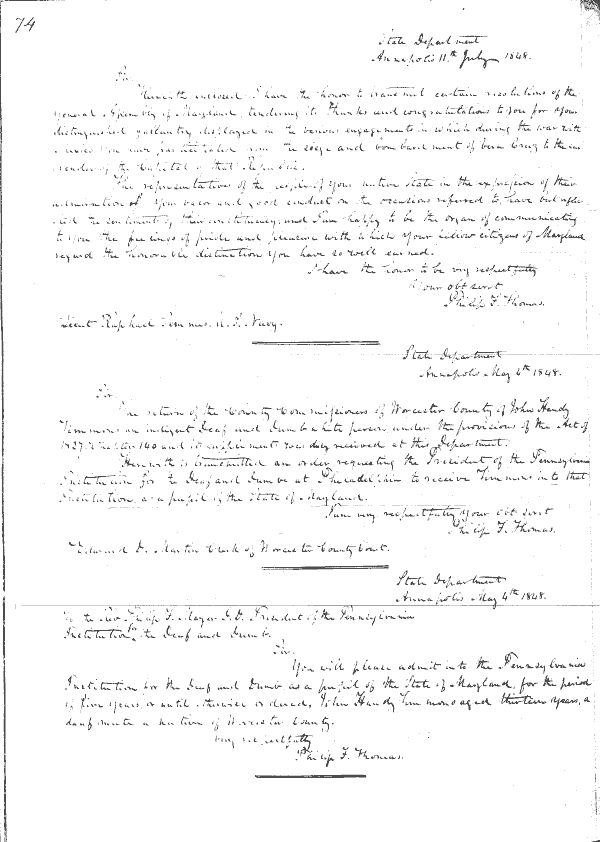 74
State Department
Annapolis 11th July 1848.
Sir
Herewith enclosed I have the honor to transmit certain resolutions of the
General Assembly of Maryland, tendering its thanks and congratulations to you for your
distinguished gallantry displayed in the various engagements in which during the war with
Mexico you have participated from the siege and bombardment of Vera Cruz to the sur
render of the Capital of that Republic.
The representatives of the people of your native State in the expression of their
admiration of your valor and good conduct on the occasions referred to, have but reflec
ted the sentiments of their constituency, and I am happy to be the organ of communicating
to you the feelings of pride and pleasure with which your fellow citizens of Maryland
regard the honorable distinction you have so well earned.
I have the honor to be very respectfully
Your obt servt
Philip F. Thomas.
Lieut Raphael Semmes U.S. Navy.
State Department
Annapolis May 4th 1848.
Sir
The return of the County Commissioners of Worcester County of John Handy
Timmons an indigent Deaf and Dumb white person under the provisions of the Act of
1827. Chapter 140 and its supplements was duly received at this Department.
Herewith is transmitted an order requesting the President of the Pennsylvania
Institution for the Deaf and Dumb at Philadelphia to receive Timmons into that
Institution, as a pupil of the State of Maryland.
I am very respectfully Your obt servt
Philip F. Thomas.
Edward D. Martin Clerk of Worcester County Court.
State Department
Annapolis May 4th 1848.
To the Rev Philip F. Mayer D.D. President of the Pennsylvania
Institution for the Deaf and Dumb.
Sir.
You will please admit into the Pennsylvania
Institution for the Deaf and Dumb as a pupil of the State of Maryland, for the period
of five years, or until otherwise ordered, John Handy Timmons aged thirteen years, a
deaf mute a native of Worcester County.
Very respectfully
Philip F. Thomas.